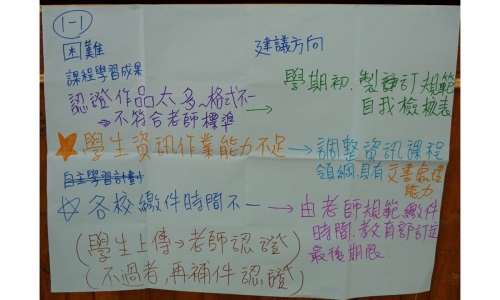 1-1
困難
建議方向
課程學習成果
認證作品太多、格式不一
→ 不符合老師標準
→ 學期初、製訂規範
自我檢核表
★學生資訊作業能力不足 → 調整資訊課程
領綱,具有文書處理
能力
自主學習計劃
☆各校繳件時間不一 → 由老師規範繳件
時間,教育部訂定
最後期限
(學生上傳→老師認證)
(不過者,再補件認證)